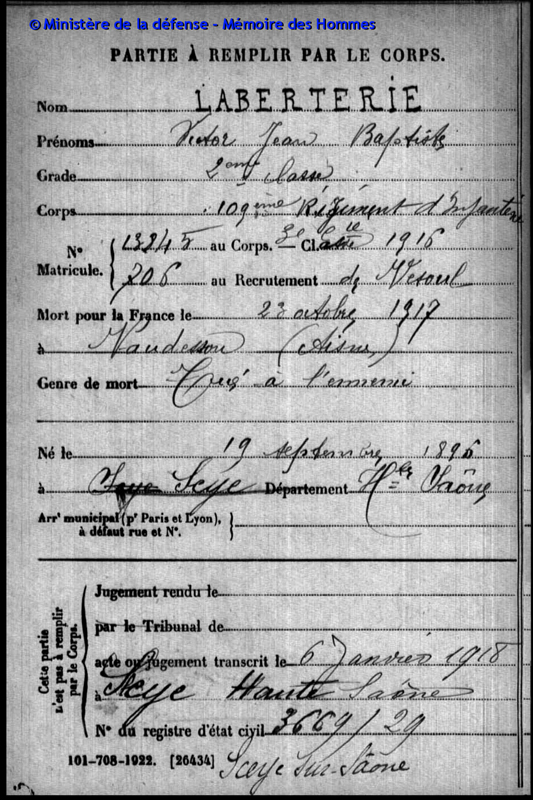 © Ministère de la défense - Mémoire des Hommes
PARTIE À REMPLIR PAR LE CORPS.
Nom LABERTERIE
Prénoms Victor Jean Baptiste
Grade 2ème classe
Corps 109ème Régiment d'Infanterie
N° Matricule. { 13245 au Corps. — Cl. 1916
706 au Recrutement de Vesoul
Mort pour la France le 23 octobre 1917
à Vaudesson (Aisne)
Genre de mort Tué à l'ennemi
Né le 19 septembre 1896
à Scye Département Hte Saône
Arrt municipal (pr Paris et Lyon), à défaut rue et N°. }
Cette partie n'est pas à remplir par le Corps.
Jugement rendu le
par le Tribunal de
acte ou jugement transcrit le 6 Janvier 1918
à Scye Haute Saône
N° du registre d'état civil 3669/29
101-708-1922. [26434] Sceye sur Saône